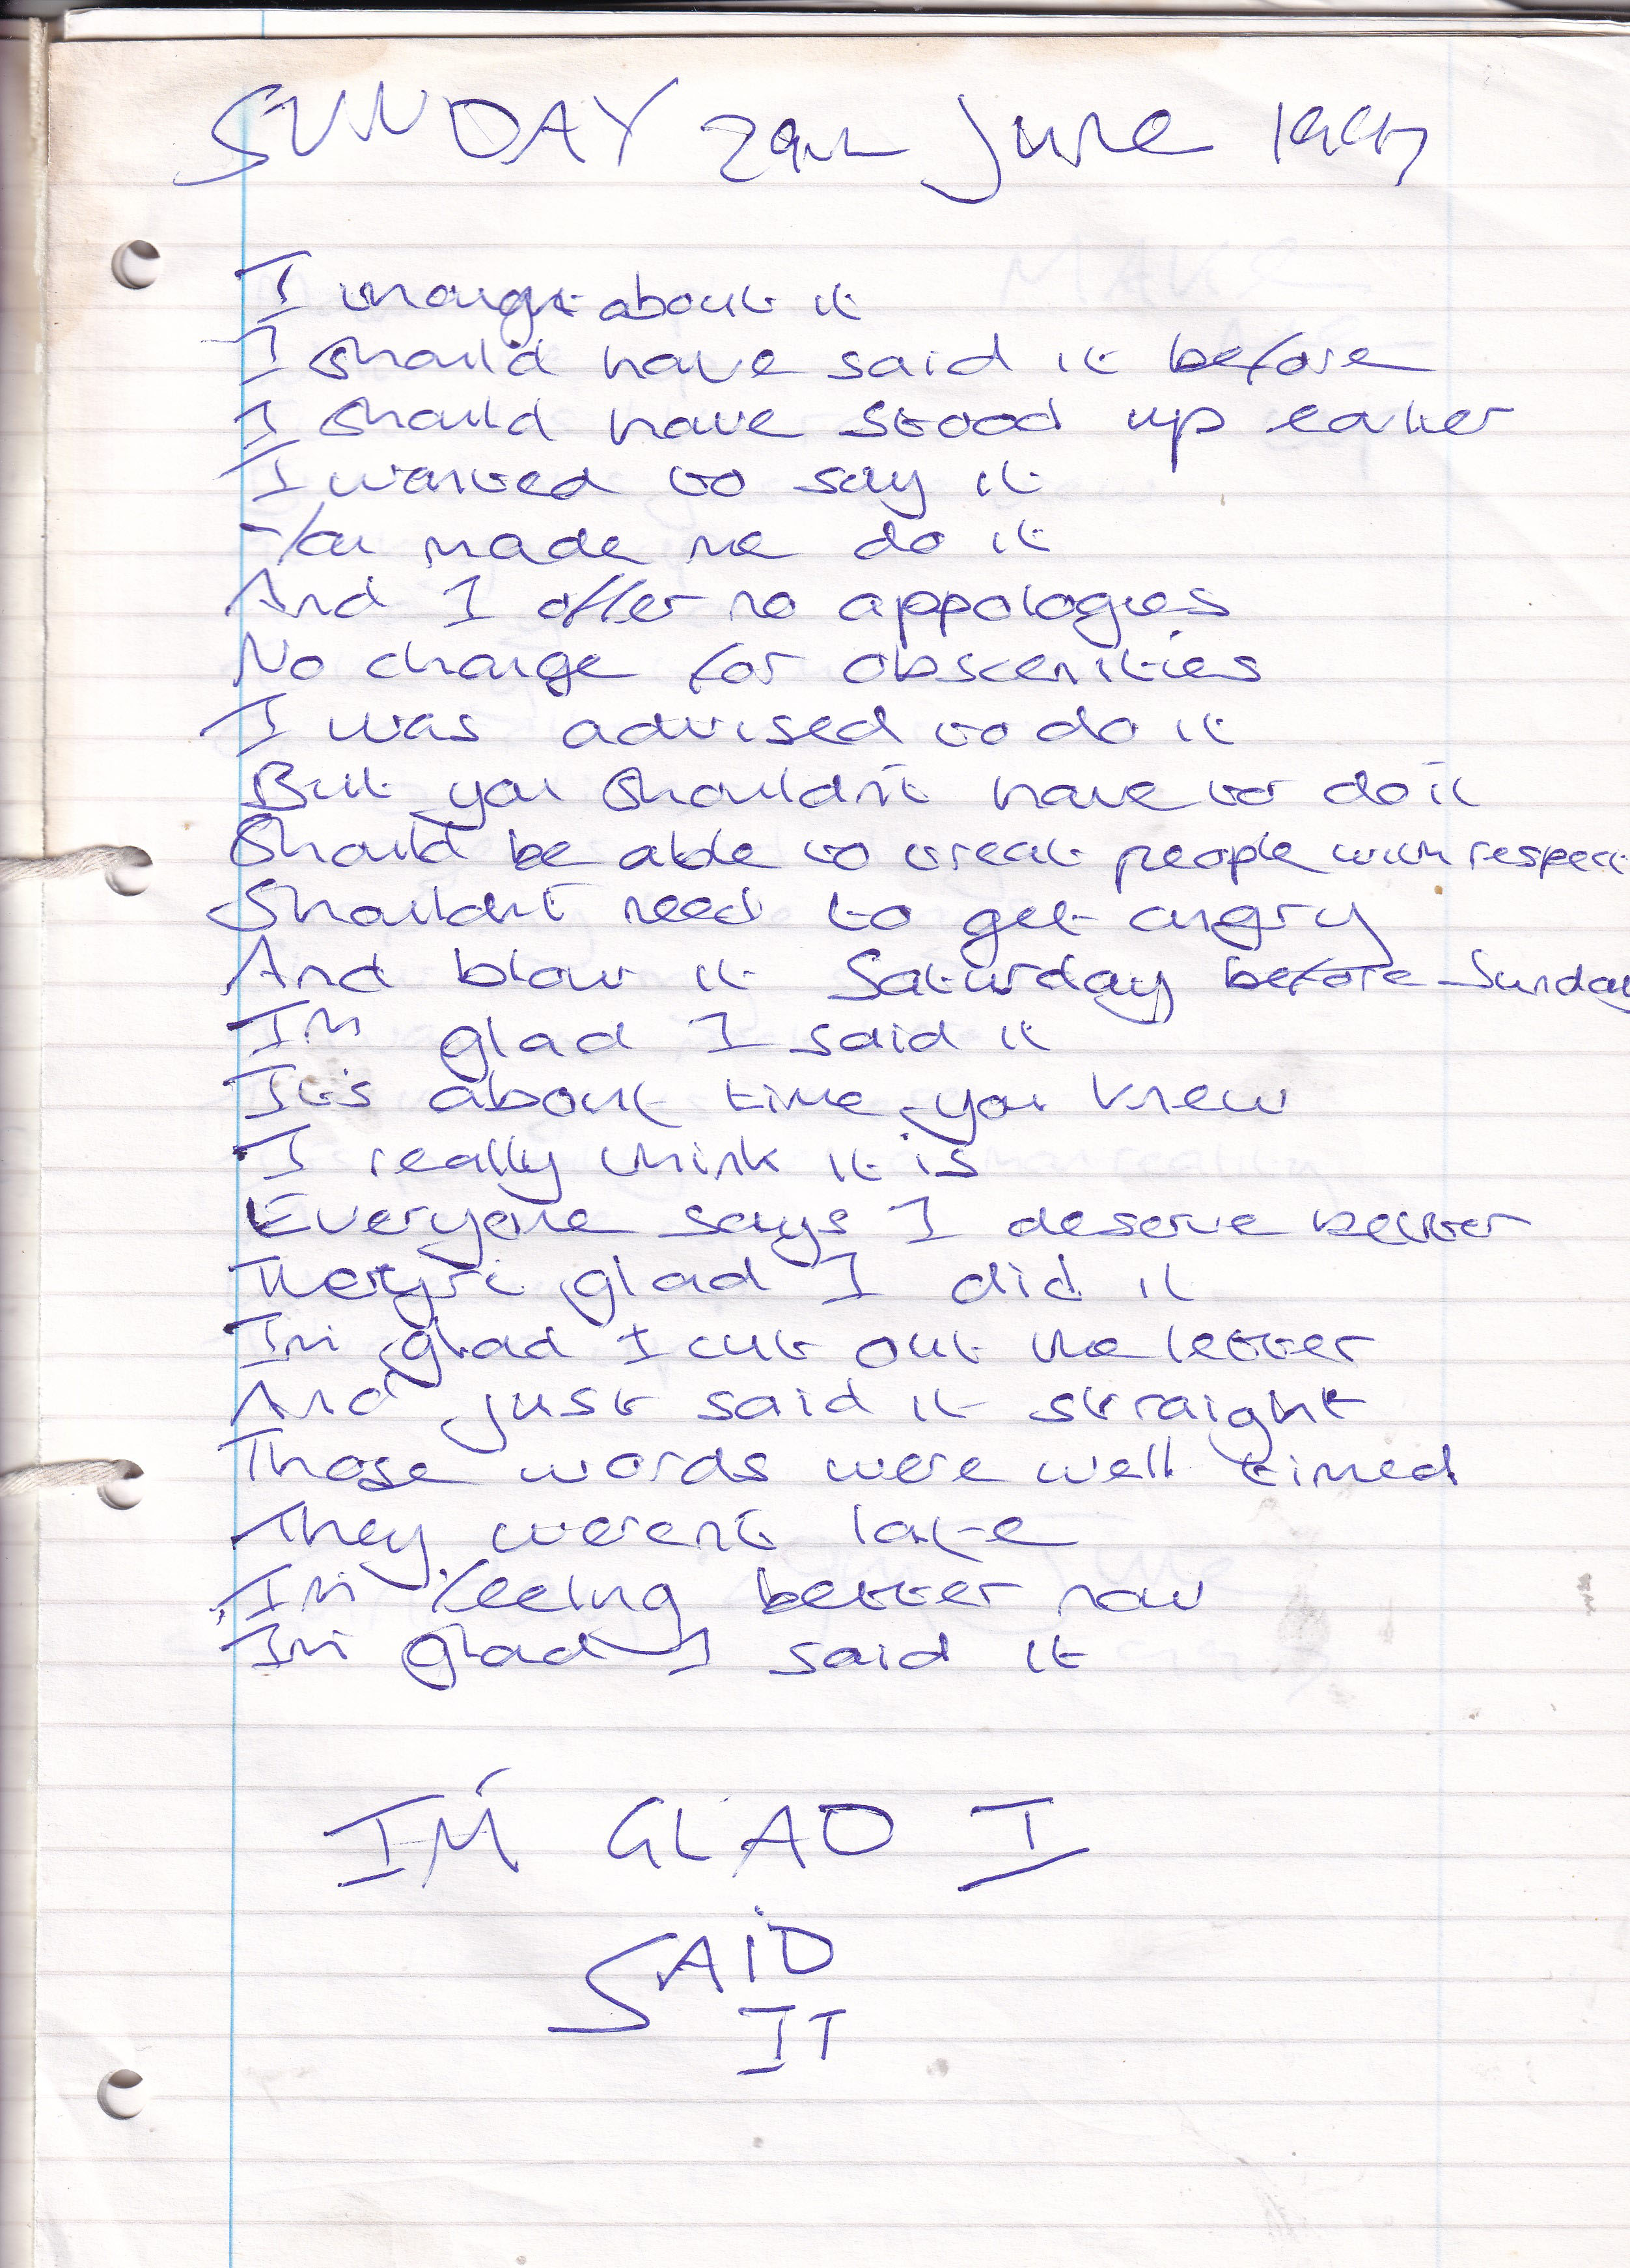 SUNDAY 29th June 1997
I thought about it
I should have said it before
I should have stood up earlier
I wanted to say it
You made me do it
And I offer no appologies
No charge for obscenities
I was advised to do it
But you shouldn't have to do it
Should be able to treat people with respect
Shouldn't need to get angry
And blow it Saturday before Sunday
I'm glad I said it
It's about time you knew
I really think it is
Everyone says I deserve better
They're glad I did it
I'm glad I cut out the letter
And just said it straight
Those words were well timed
They weren't late
I'm feeling better now
I'm glad I said it
I'M GLAD I
SAID
IT